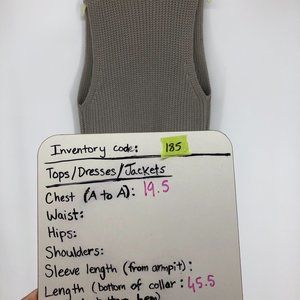 Inventory code: 185
Tops/Dresses/Jackets
Chest (A to A): 19.5
Waist:
Hips:
Shoulders:
Sleeve length (from armpit):
Length (bottom of collar : 45.5